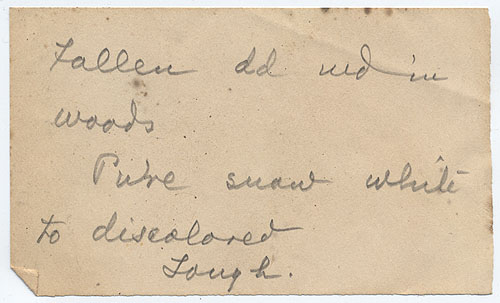 Fallen dd wd in
woods
Pure snow white
to discolored
Tough.